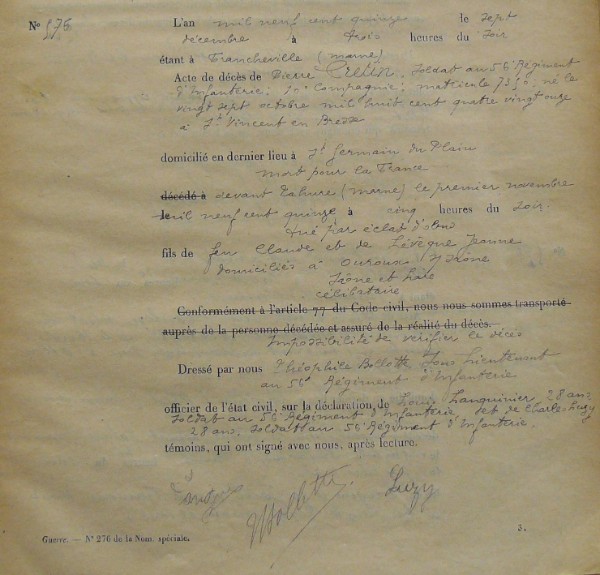 L'an mil neuf cent quinze le sept
No 575
décembre à trois heures du soir
étant à Francheville (marne)
Acte de décès de Pierre soldat au 56e Régiment
d'Infanterie, Compagnie, matricule né le
vingt sept octobre mil huit cent quatre vingt onze
à St Vincent en Bresse
domicilié en dernier lieu à St Germain du Plain
mort pour la France
décédé à devant Tahure (marne) le premier novembre
le mil neuf cent quinze à cinq heures du soir.
tué par éclat d'obus
fils de feu Claude et de Lévêque Jeanne
domiciliés à Ouroux s/ Saône
Saône et Loire
célibataire
Conformément à l'article 77 du Code civil, nous nous sommes transporté
auprès de la personne décédée et assuré de la réalité du décès.
Impossibilité de vérifier le décès
Dressé par nous Théophile Bollotte Sous Lieutenant
au 56e Régiment d'Infanterie
officier de l'état civil, sur la déclaration de Louis 28 ans,
soldat au 56e Régiment d'Infanterie et de Charles Luzy
28 ans, soldat au 56e Régiment d'Infanterie.
témoins, qui ont signé avec nous, après lecture.
Bollotte Luzy
Guerre. — No 276 de la Nom. spéciale. 3.